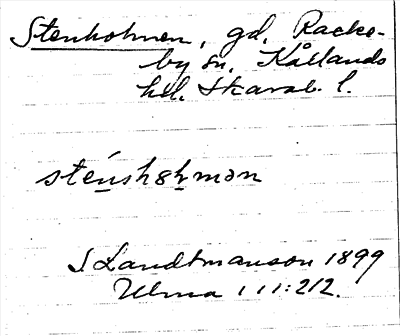 Stenholmen, gd, Racke-
by sn, Kållands
hd. Skarab. l.
sténshȣmən
S Landtmanson 1899
Ulma 111:212.